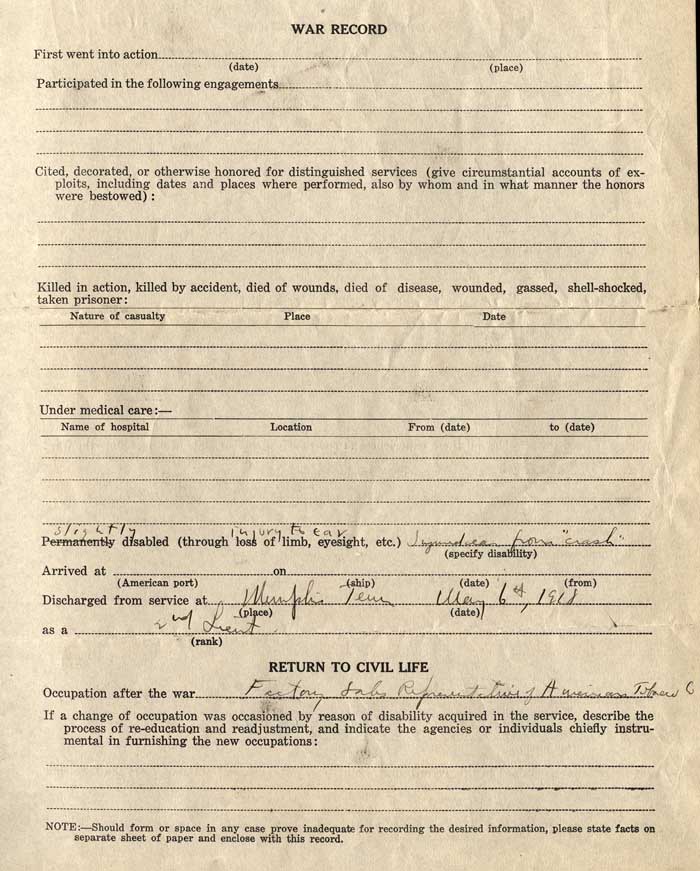 WAR RECORD
First went into action
(date) (place)
Participated in the following engagements
Cited, decorated, or otherwise honored for distinguished services (give circumstantial accounts of ex-
ploits, including dates and places where performed, also by whom and in what manner the honors
were bestowed) :
Killed in action, killed by accident, died of wounds, died of disease, wounded, gassed, shell-shocked,
taken prisoner:
Nature of casualty Place Date
Under medical care:—
Name of hospital Location From (date) to (date)
slightly injury to ear
Permanently disabled (through loss of limb, eyesight, etc.) from "crash"
(specify disability)
Arrived at on
(American port) (ship) (date) (from)
Discharged from service at Memphis Tenn May 6th, 1918
(place) (date)
as a 2nd Lieut.
(rank)
RETURN TO CIVIL LIFE
Occupation after the war Factory Sales Representative of American Tobacco C
If a change of occupation was occasioned by reason of disability acquired in the service, describe the
process of re-education and readjustment, and indicate the agencies or individuals chiefly instru-
mental in furnishing the new occupations:
NOTE:—Should form or space in any case prove inadequate for recording the desired information, please state facts on
separate sheet of paper and enclose with this record.